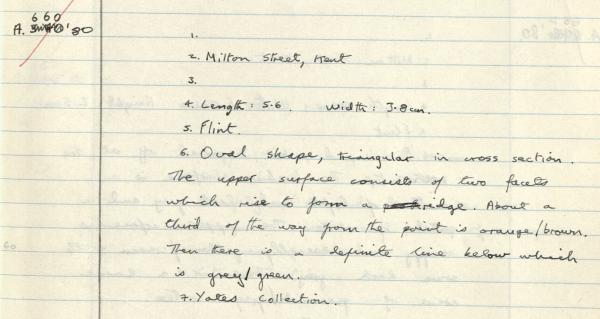 660
A. '80
1.
2. Milton Street, Kent
3.
4. Length: 5.6. Width: 3.8cm.
5. Flint.
6. Oval shape, triangular in cross section.
The upper surface consists of two facets
which rise to form a ridge. About a
third of the way from the point is orange/brown.
Then there is a definite line below which
60
is grey/green.
7. Yates Collection.